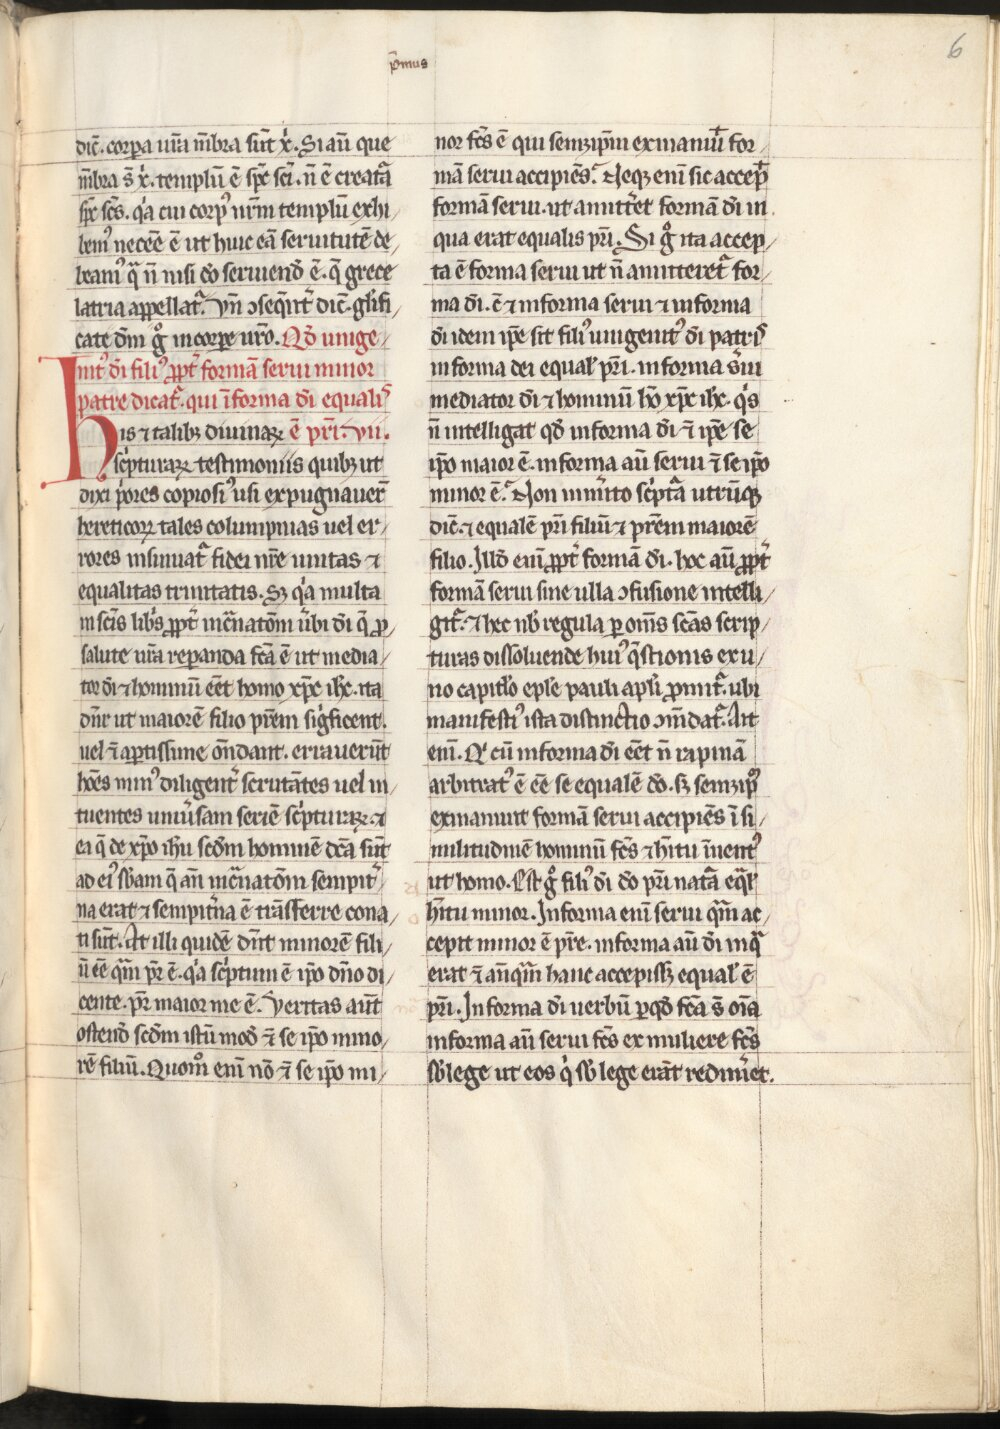 p̄mus
6
dic̄. corpa ur̄a m̄bra sūt x̓. Si aū que
m̄bra s̄ x̓. templū ē sp̄c sc̄i. n̄ ē creatā
sp̄c sc̄s. q̓a cui corpꝰ nr̄m templū exhi
bemꝰ necēe ē ut huic eā seruitutē de
beamꝰ q̄ n̄ nisi dō seruiend̄ ē. q̄ grece
latria appellat᷑. Vn̄ ↄseq̄nt᷑ dic̄. gl̄ifi
cate dm̄ gͦ in corpe ur̄o. Qd̄ unige
nitꝰ d̄i filiꝰ ꝓpt᷑ formā serui minor
patre dicat᷑. qui ī forma d̄i equalis
his ⁊ talibꝫ diuinaꝝ ē pr̄i. vii.
sc̓pturaꝝ testimoniis quibꝫ ut
dixi p̓ores copiosiꝰ usi expugnauer̄
hereticoꝝ tales columpnias uel er
rores insinuat᷑ fidei nr̄e unitas ⁊
equalitas trinitatis. Sꝫ q̓a multa
in sc̄is lib̓s ꝓpt᷑ inc̄natōm u̓bi d̄i q̄ ꝓ
salute nr̄a reparanda fc̄a ē ut media
tor d̄i ⁊ hominū eēt homo xp̄c ih̄c. ita
dn̄r ut maiorē filio pr̄em sig̓ficent.
uel ⁊ aptissime on̄dant. errauerūt
hoēs minꝰ diligent᷑ scrutātes uel in
tuentes uniu̓sam seriē sc̓pturaꝝ. ⁊
ea q̄ de xp̄o ih̄u sc̄dm hominē dc̄a sūt
ad eiꝰ sb̄am q̄ an̄ inc̄natōm sempit᷑
na erat ⁊ sempit᷑na ē trāsferre cona
ti sūt. At illi quidē dn̄t minorē fili
ū eē qm̄ pr̄ ē. q̓a sc̓ptum ē ip̄o dn̄o di
cente. pr̄ maior me ē. Veritas aūt
ostend̄ sc̄dm istū mod̄ ⁊ se ip̄o mino
rē filiū. Quomͦ enī nō ⁊ se ip̄o mi
nor fc̄s ē qui semꝫip̄m exinaniu̓ for
mā serui accipiēs. Neqꝫ enī sic accep̄
formā serui. ut amitt᷑et formā d̄i in
qua erat equalis pr̄i. Si gͦ ita accep
ta ē forma serui ut n̄ amitteret᷑ for
ma d̄i. c̄ ⁊ in forma serui ⁊ in forma
d̄i idem ip̄e sit filiꝰ unigenitꝰ d̄i patris
in forma dei equal̓ pr̄i. in forma s̓ui
mediator d̄i ⁊ hominū hō xp̄c ih̄c. q̓s
n̄ intelligat qd̄ in forma d̄i ⁊ ip̄e se
ip̄o maior ē. in forma aū serui ⁊ se ip̄o
minor ē. Non inm̓ito sc̓pt̄a utrūqꝫ
dic̄. ⁊ equalē pr̄i filiū ⁊ pr̄em maiorē
filio. Illd̄ enī ꝓpt᷑ formā d̄i. hoc aū ꝓpt᷑
formā serui sine ulla ↄfusione intelli
git᷑. ⁊ hec nob̓ regula ꝑ om̄s sc̄as scrip
turas dissoluende huiꝰ q̄stionis ex u
no capitl̓o epl̄e pauli apl̄i ꝓmit᷑. ubi
manifestiꝰ ista distinctio ↄm̄dat᷑. Ait
enī. Qͥ cū in forma d̄i eēt n̄ rapinā
arbitratꝰ ē eē se equalē dō. sꝫ semꝫip̄m
exinaniuit formā serui accipiēs ī si
militudinē hominū fc̄s ⁊ hītu īuentꝰ
ut homo. Est gͦ filiꝰ d̄i dō pr̄i natā eq̄l̓
hītu minor. In forma enī serui qm̄ ac
cepit minor ē pr̄e. in forma aū d̄i in q̄
erat ⁊ anq̄m hanc accepissꝫ equal̓ ē
pr̄i. In forma d̄i uerbū ꝑ qd̄ fc̄a s̄ oīa
in forma aū serui fc̄s ex muliere fc̄s
sb̄ lege ut eos q̓ sb̄ lege erāt redim̓et.